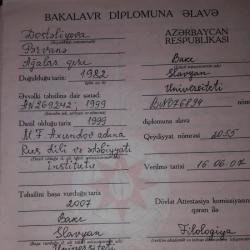 BAKALAVR DİPLOMUNA ƏLAVƏ
Dostəliyeva
Pərvanə
Ağalar qızı
Doğulduğu tarix: 1982
Əvvəlki təhsilinə dair sənəd:
AN269242; 1999
Daxil olduğu tarix 1999
M.F. Axundov adına
Rus dili və ədəbiyyatı
institutu
Təhsilini başa vurduğu tarix
2007
Bakı
Slavyan
Universiteti
AZƏRBAYCAN
RESPUBLİKASI
Bakı
Slavyan
Universiteti
B№076894
diplomuna əlavə
Qeydiyyat nömrəsi 2055
Verilmə tarixi 16.06.07
Dövlət Attestasiya komissiyasının
qərarı ilə
Filologiya